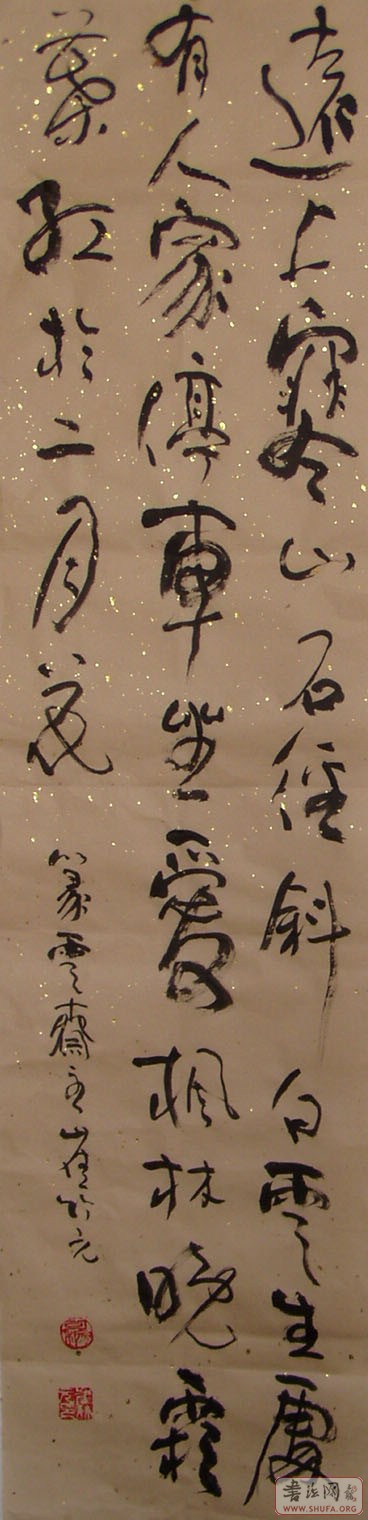 遠上寒山石徑斜白雲生處
有人家停車坐愛楓林晚霜
葉紅於二月花
篆雲齋主
書法网
WWW.SHUFA.ORG